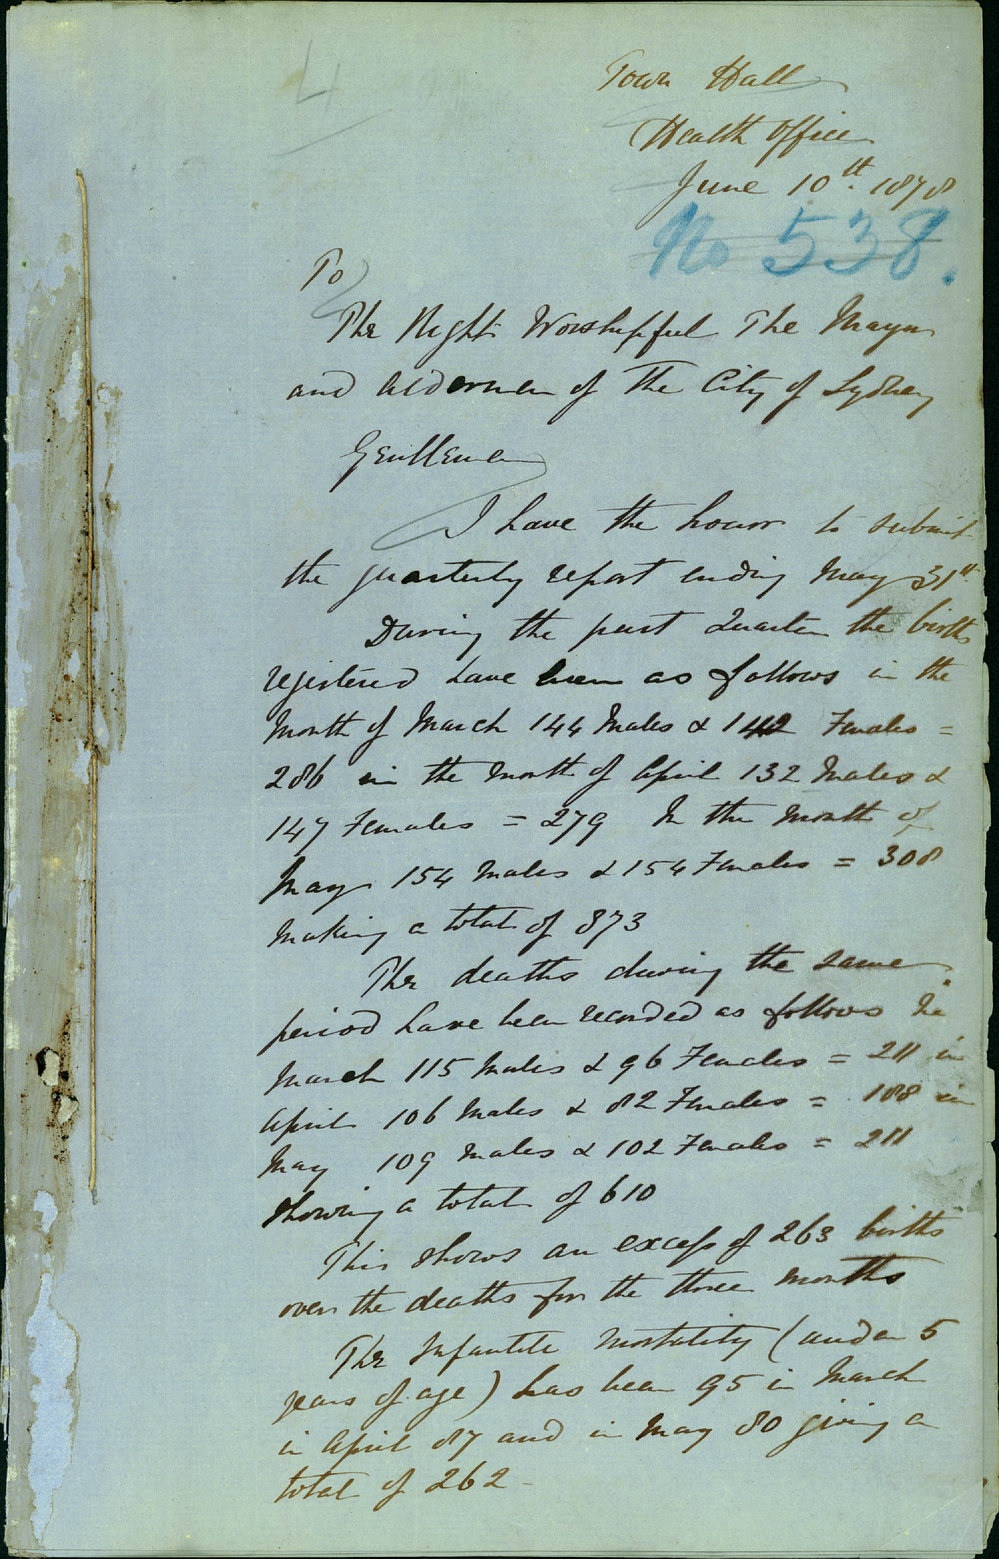 4
Town Hall
Health Office
June 10th. 1878
No 538.
To
The Right Worshipful The Mayor
and Aldermen of The City of Sydney
Gentlemen
I have the honor to submit
the quarterly report ending May 31st
During the past Quarter the births
registered have been as follows in the
Month of March 144 Males & 142 Females =
286 in the Month of April 132 Males &
147 Females = 279 In the Month of
May 154 Males & 154 Females = 308
Making a total of 873
The deaths during the same
period have been recorded as follows In
March 115 Males & 96 Females = 211 in
April 106 Males & 82 Females = 188 in
May 109 Males & 102 Females = 211
Showing a total of 610
This shows an excess of 263 births
over the deaths for the three months
The Infantile Mortality (under 5
years of age) has been 95 in March
in April 87 and in May 80 giving a
total of 262 -